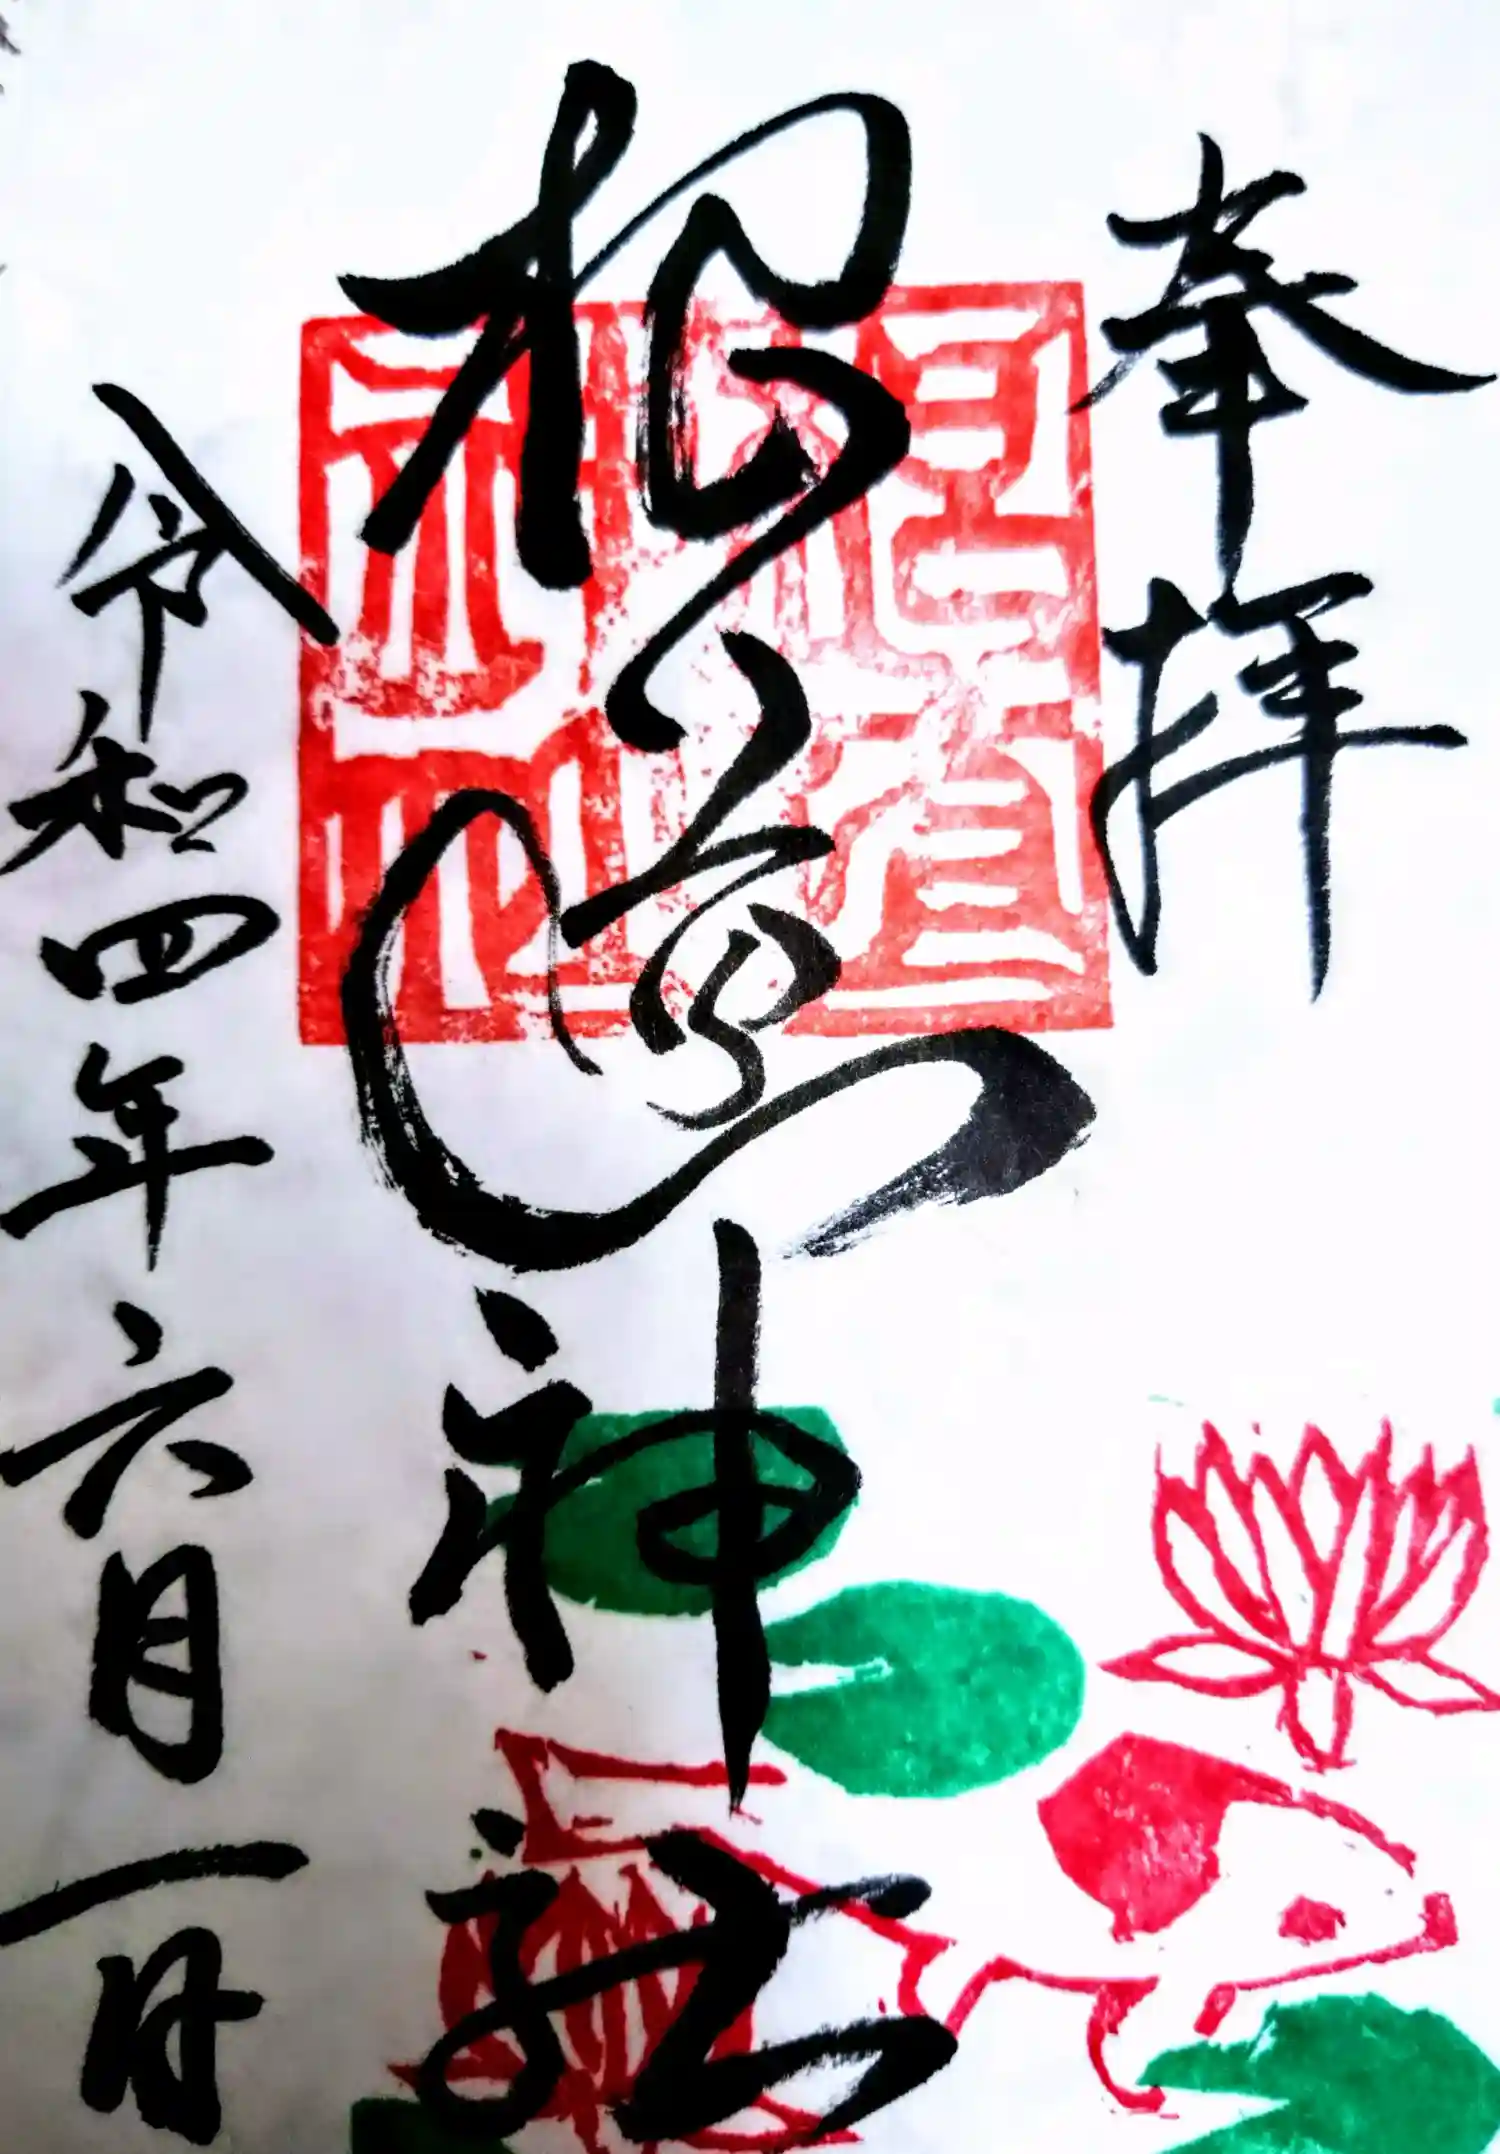 奉拝
根道神社
令和四年六月一日
根道
神社